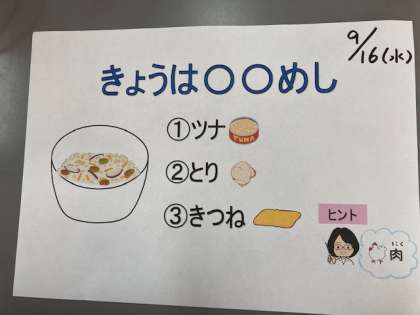 9/16(水)
きょうは〇〇めし
①ツナ
TUNA
②とり
③きつね
ヒント
肉